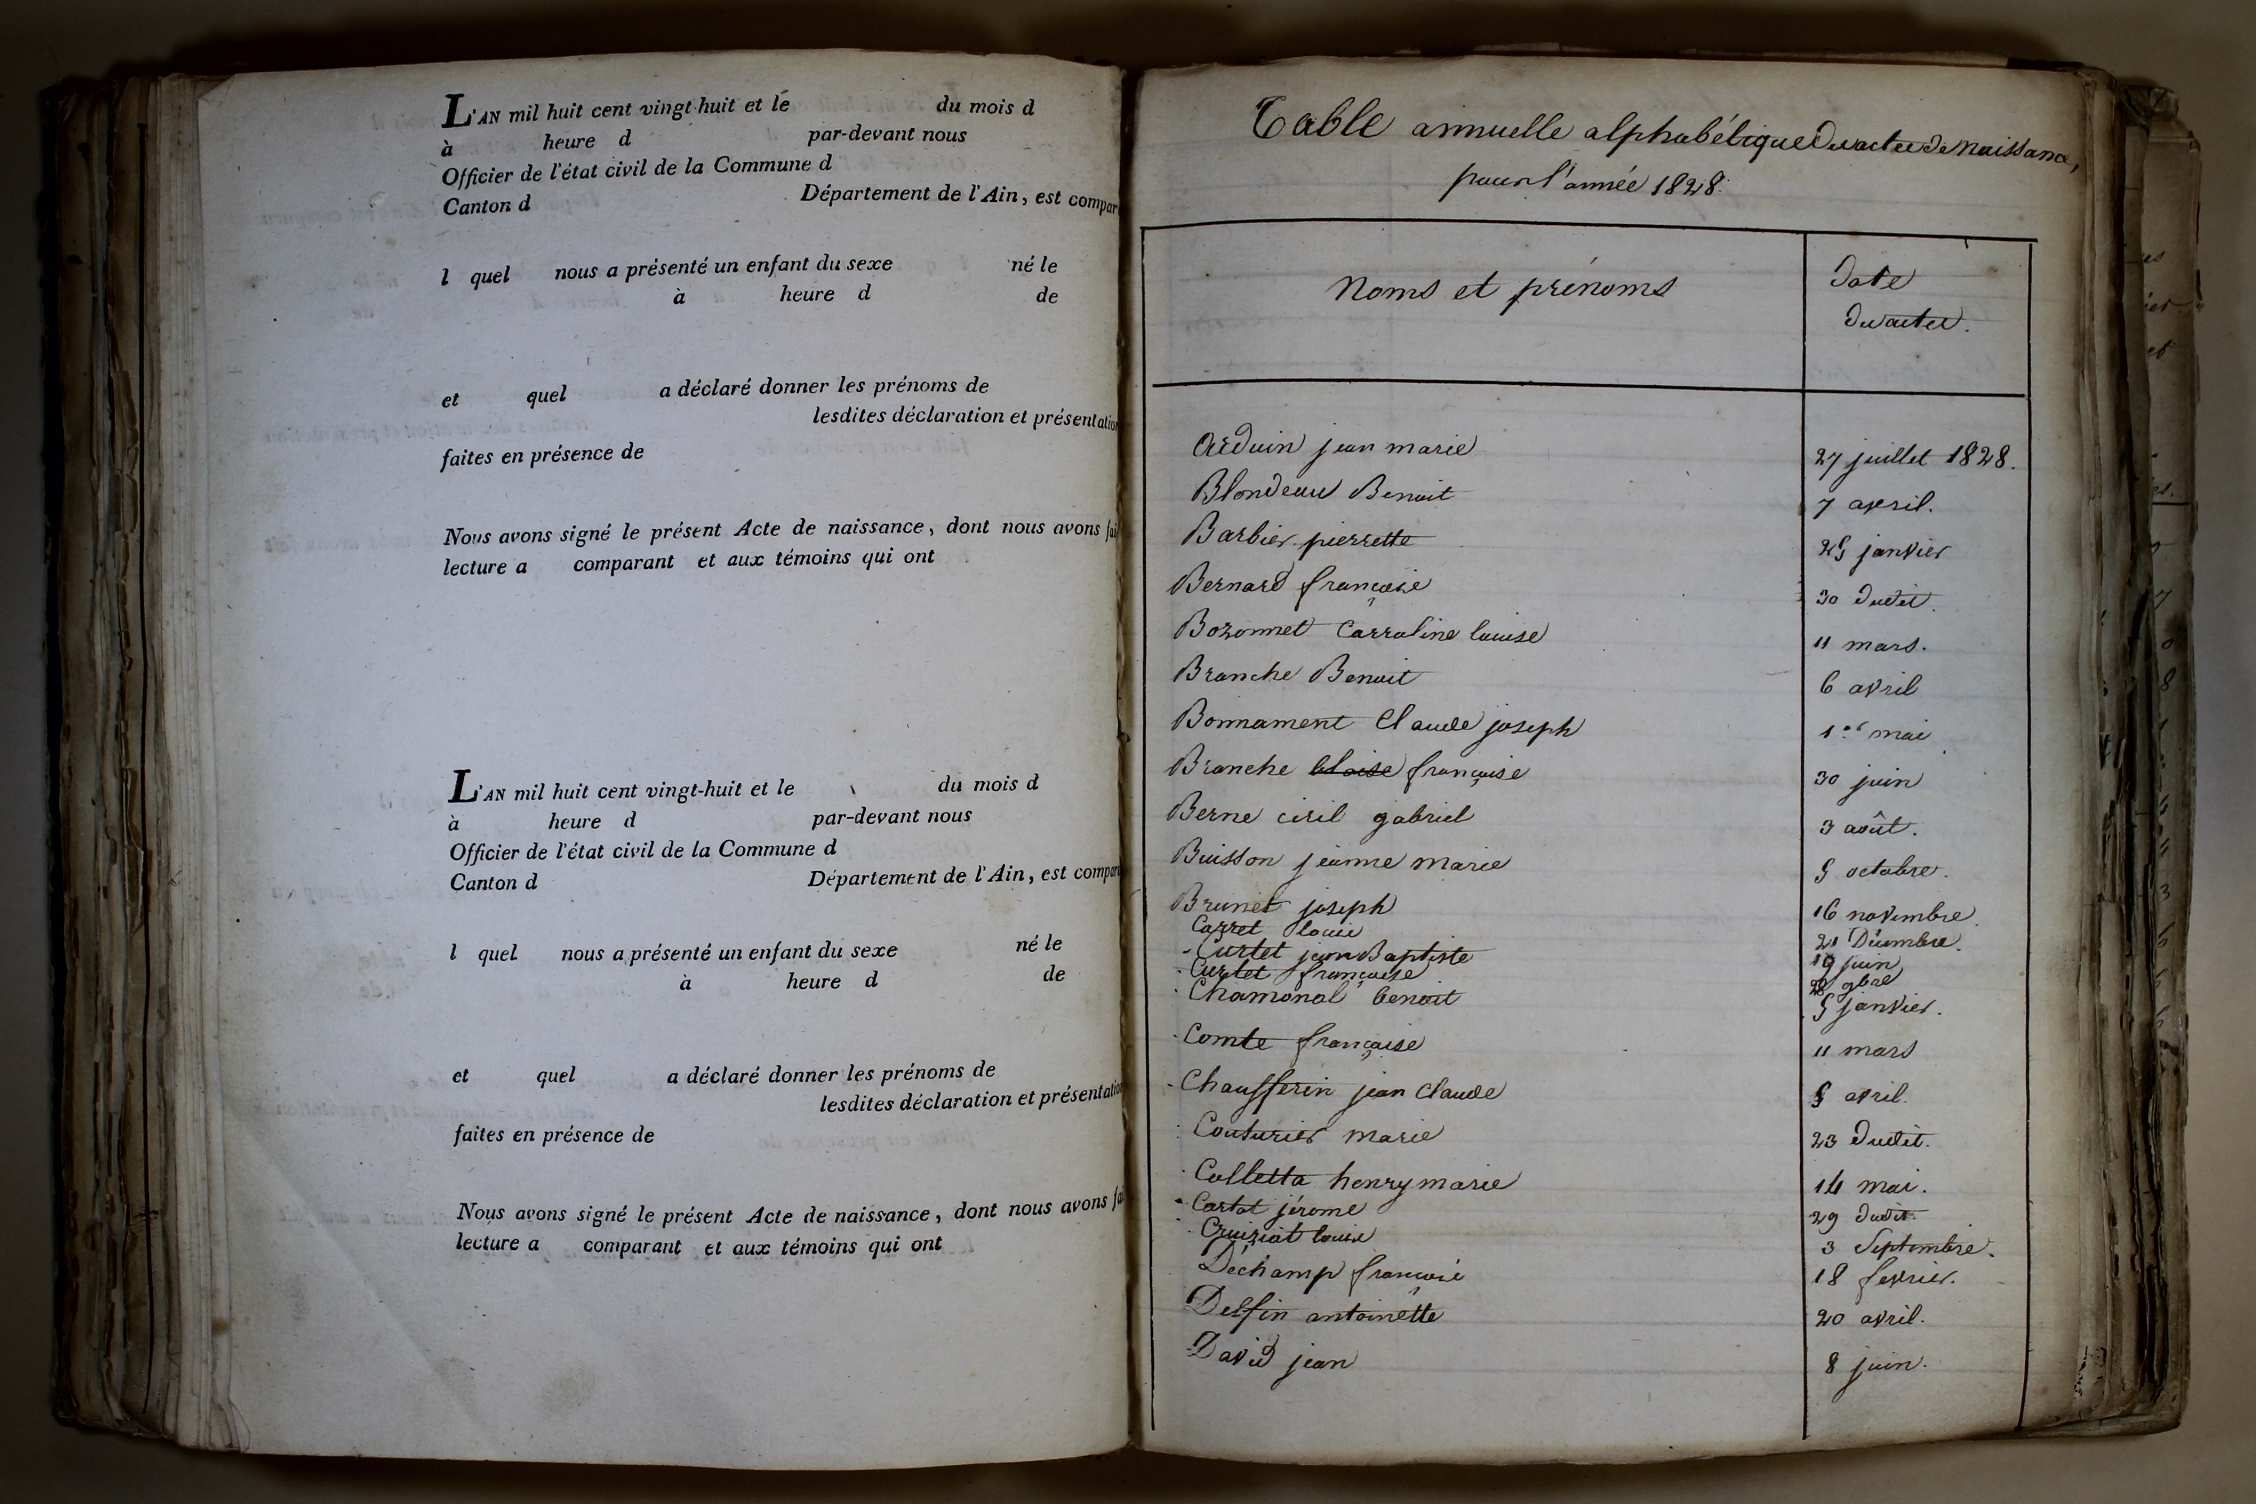 L'AN mil huit cent vingt-huit et le du mois d
à heure d par-devant nous
Officier de l'état civil de la Commune d
Canton d Département de l'Ain, est compar
l quel nous a présenté un enfant du sexe né le
à heure d de
et quel a déclaré donner les prénoms de
lesdites déclaration et présentation
faites en présence de
Nous avons signé le présent Acte de naissance, dont nous avons fai
lecture a comparant et aux témoins qui ont
L'AN mil huit cent vingt-huit et le du mois d
à heure d par-devant nous
Officier de l'état civil de la Commune d
Canton d Département de l'Ain, est compar
l quel nous a présenté un enfant du sexe né le
à heure d de
et quel a déclaré donner les prénoms de
lesdites déclaration et présentation
faites en présence de
Nous avons signé le présent Acte de naissance, dont nous avons fai
lecture a comparant et aux témoins qui ont
Table annuelle alphabétique des actes de naissance,
pour l'année 1828.
Noms et prénoms Date
des actes.
Arduin jean marie 27 juillet 1828.
Blondeau Benoit 7 avril.
Barbier pierrette 25 janvier
Bernard françoise 30 dudit.
Bozonnet Carroline louise 11 mars.
Branche Benoit 6 avril
Bonnament Claude joseph 1er mai
Branche françoise 30 juin
Berne ciril gabriel 3 août.
Buisson jeanne marie 5 octobre.
Brunet joseph 16 novembre.
Carret louis 21 Décembre.
Curtet jean Baptiste 19 juin
Curtet françoise 28 9bre
Chamonal benoit 5 janvier.
Comte françoise 11 mars
Chaufferin jean Claude 5 avril.
Couturier marie 23 dudit.
Colletta henry marie 14 mai.
Cartat jérome 29 dudit.
Cruiziat louise 3 Septembre.
Déchamp françois 18 fevrier.
Delfin antoinette 20 avril.
David jean 8 juin.